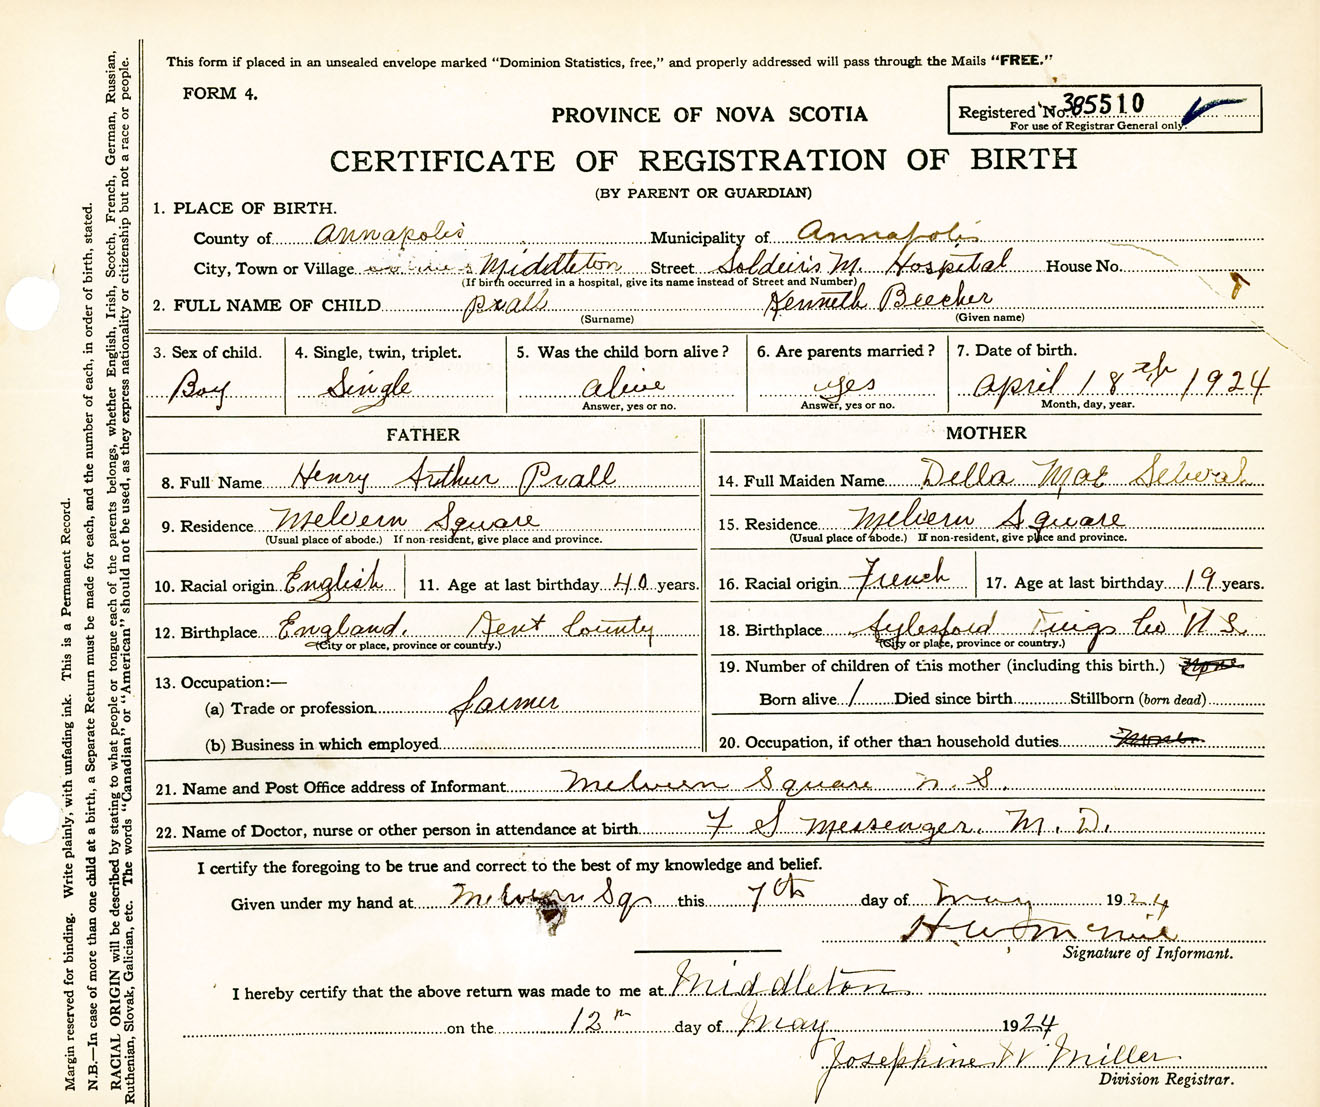 This form if placed in an unsealed envelope marked "Dominion Statistics, free," and properly addressed will pass through the Mails "FREE."
FORM 4.
PROVINCE OF NOVA SCOTIA
Registered No. 385510
For use of Registrar General only.
CERTIFICATE OF REGISTRATION OF BIRTH
(BY PARENT OR GUARDIAN)
1. PLACE OF BIRTH.
County of Annapolis Municipality of Annapolis
City, Town or Village Middleton Street Soldeirs M. Hospital House No.
(If birth occurred in a hospital, give its name instead of Street and Number)
2. FULL NAME OF CHILD Prall Kenneth Beecher
(Surname) (Given name)
3. Sex of child. 4. Single, twin, triplet. 5. Was the child born alive? 6. Are parents married? 7. Date of birth.
Boy Single alive yes April 18th 1924
Answer, yes or no. Answer, yes or no. Month, day, year.
FATHER MOTHER
8. Full Name Henry Arthur Prall 14. Full Maiden Name Della Mae
9. Residence Melvern Square 15. Residence Melvern Square
(Usual place of abode.) If non-resident, give place and province. (Usual place of abode.) If non-resident, give place and province.
10. Racial origin English 11. Age at last birthday 40 years. 16. Racial origin French 17. Age at last birthday 19 years.
12. Birthplace England. Kent County 18. Birthplace Aylesford Kings Co N.S.
(City or place, province or country.) (City or place, province or country.)
13. Occupation:— 19. Number of children of this mother (including this birth.) None
(a) Trade or profession farmer Born alive 1 Died since birth Stillborn (born dead)
(b) Business in which employed 20. Occupation, if other than household duties
21. Name and Post Office address of Informant Melvern Square N. S.
22. Name of Doctor, nurse or other person in attendance at birth F S Messenger. M. D.
I certify the foregoing to be true and correct to the best of my knowledge and belief.
Given under my hand at Melvern Sq this 7th day of May 1924
H W McNeil
Signature of Informant.
I hereby certify that the above return was made to me at Middleton
on the 12th day of May 1924
Josephine W. Miller
Division Registrar.
Margin reserved for binding. Write plainly, with unfading ink. This is a Permanent Record.
N.B.—In case of more than one child at a birth, a Separate Return must be made for each, and the number of each, in order of birth, stated.
RACIAL ORIGIN will be described by stating to what people or tongue each of the parents belongs, whether English, Irish, Scotch, French, German, Russian,
Ruthenian, Slovak, Galician, etc. The words "Canadian" or "American" should not be used, as they express nationality or citizenship but not a race or people.